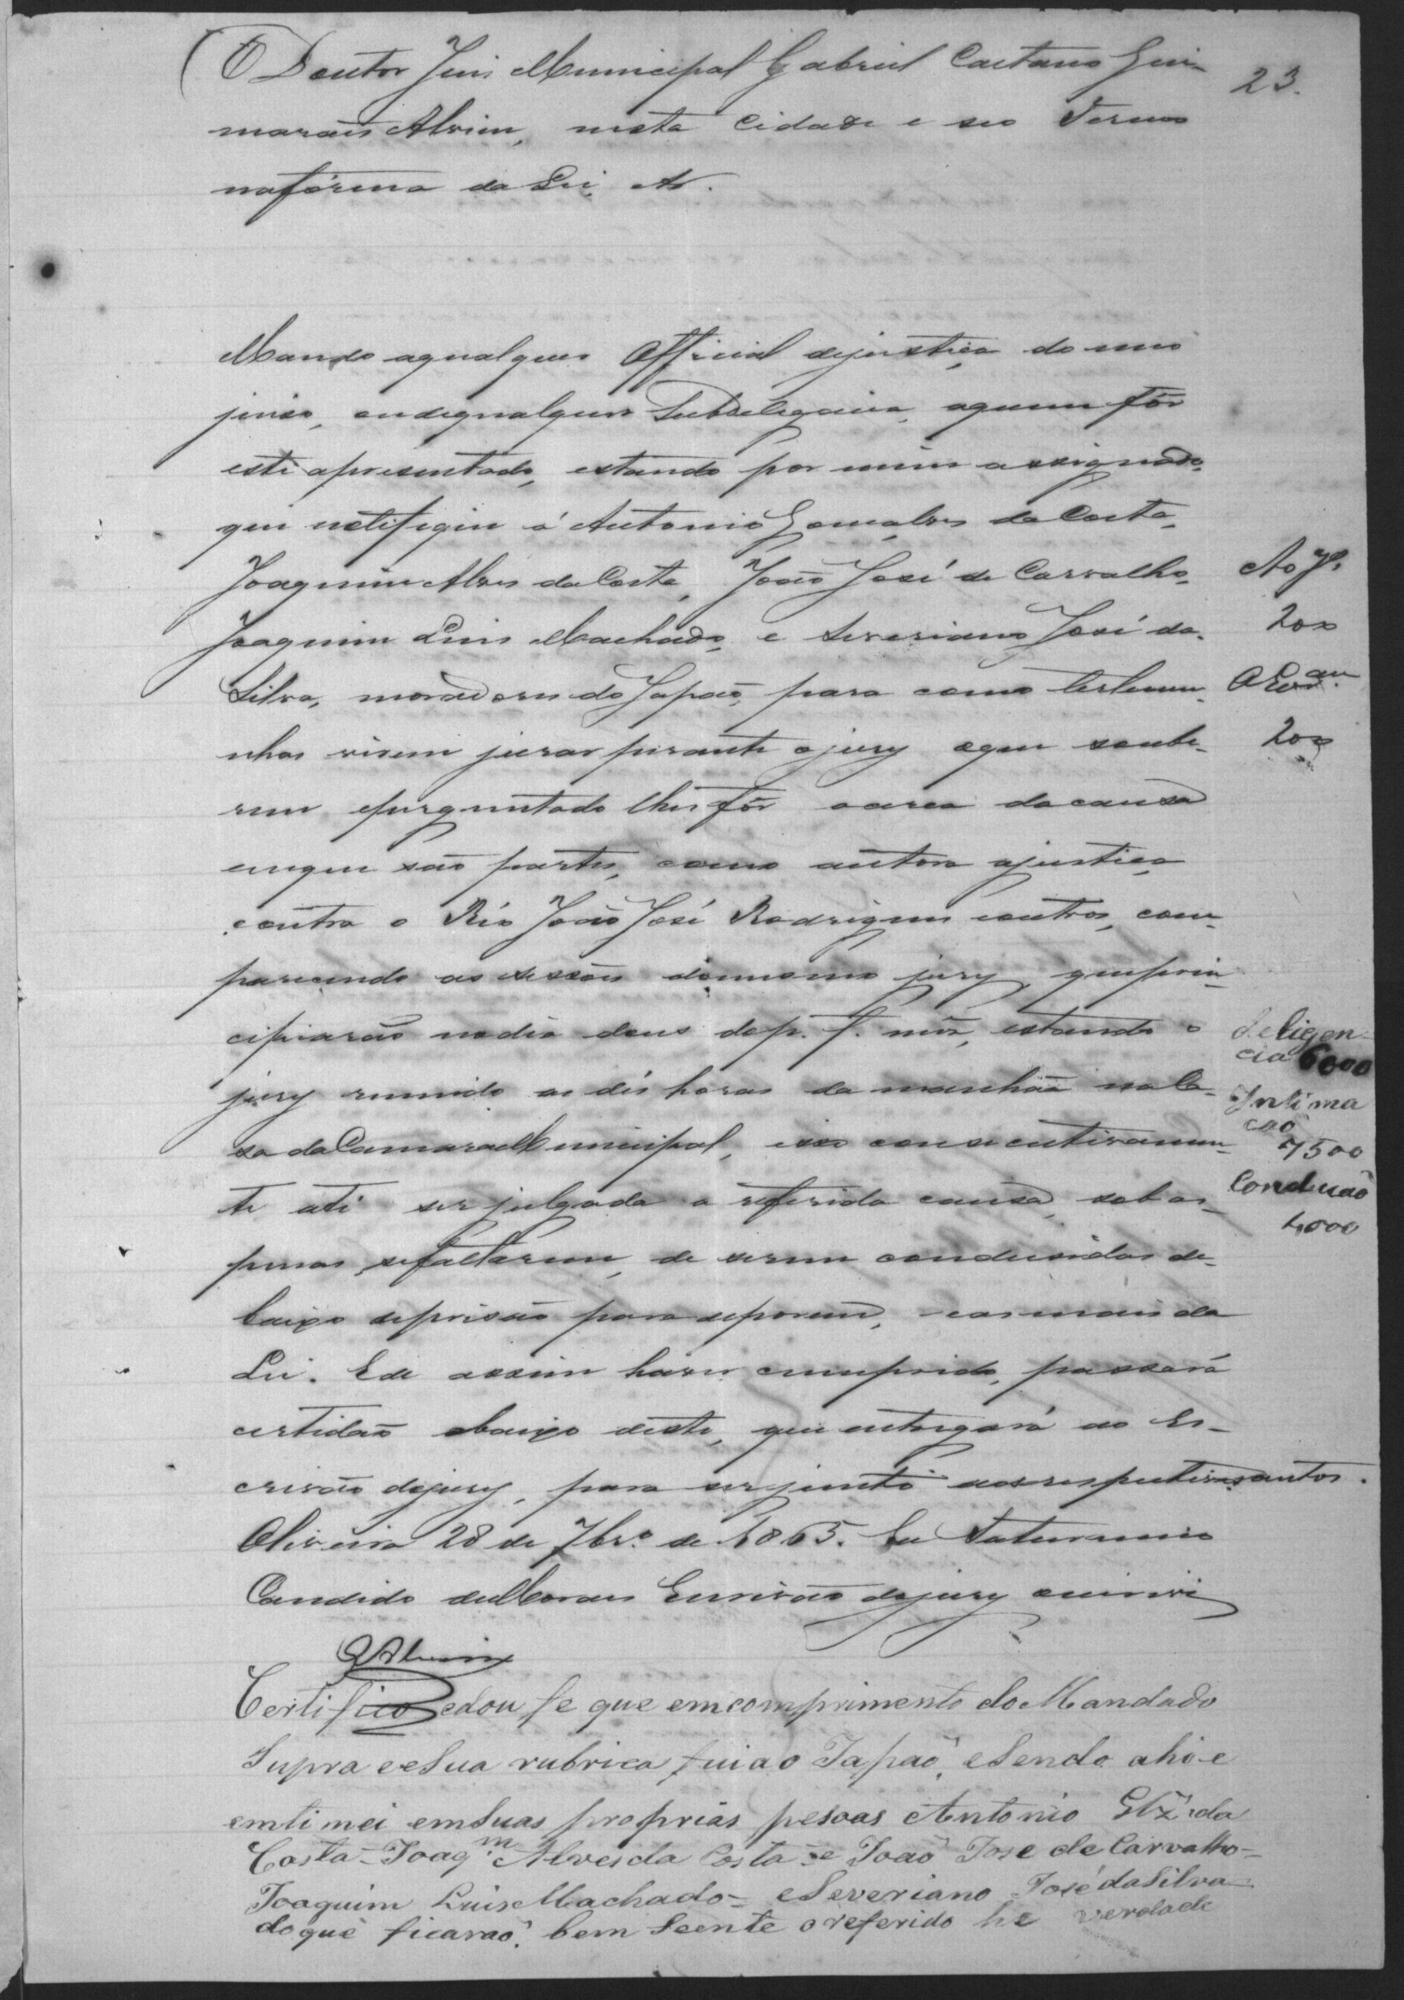 O Doutor Juis Municipal Gabriel Caetano Gui-
23.
marães Alvim, nesta Cidade e seo Termo
na fórma da Lei, &.
Mando aqualquer Official dejustiça do meu
juiso, oudequalquer Subdelegacia, aquem fôr
este apresentado, estando por mim assignado,
que notifique á Antonio Gonçalves da Costa,
Joaquim Alves da Costa, João José de Carvalho,
Joaquim Luis Machado, e Severiano José da
Silva, moradores do Japão, para como testemu-
nhas virem jurar perante o jury oque soube-
rem eperguntado lhes fôr acerca da causa
emque são partes, como autora ajustiça,
contra o Réo João José Rodrigues eoutros, com-
parecendo as sessões domesmo jury, queprin-
cipiarão nodia dous dep. f. mez, estando o
jury reunido as dés horas da manhãa na Ca-
sa da Camara Municipal, eisso consecutivamen-
te até ser julgada a referida causa, sob as
penas, sefaltarem, de serem condusidas de-
baixo deprisão para deporem, easmais da
Lei. Ede assim haver cumprido, passará
certidão abaixo deste, que entregará ao Es-
crivão dojury, para serjunto aosrespectivos autos.
Oliveira 28 de 7br.º de 1865. Eu Saturnino
Candido de Moraes Escrivão dojury escrivi
GAlvim
Ao J.
200
200
deligen-
cia 6000
Intima
cão
7500
Condução
4000
Certifico edou fe que emcomprimento do Mandado
Supra eeSua rubrica fui ao Japaõ, eSendo ahi e
emtimei emSuas proprias pesoas Antonio Glz' da
Costa - Joaq.m Alves da Costa - e João Jose de Carvalho -
Joaquim Luis Machado - eSeveriano José da Silva -
do que ficaraõ bem Sciente o referido he verdade